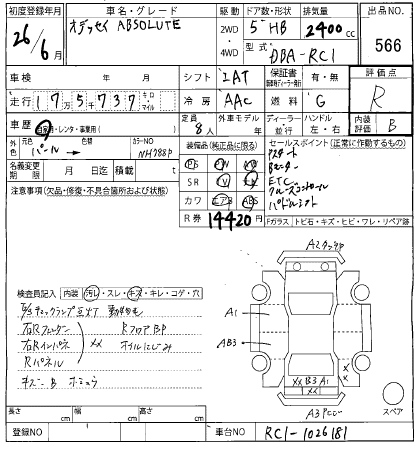 初度登録年月 車名・グレード 駆動 ドア数・形状 排気量 出品NO.
26年 6月 オデッセイ ABSOLUTE 2WD 4WD 5 HB 2400cc 566
型式 DBA-RC1
車検 年 月 シフト IAT 保証書 有・無 評価点
走行 175737 キロ マイル 冷房 AAC 燃料 G R
車歴 自家用・レンタ・事業用( ) 定員 8人 外車モデル 年 ディーラー 並行 ハンドル 左・右 内装評価 B
外色 元色 パール 色替 カラーNO NH788P 装備品(純正品に限る) セールスポイント(正常に作動するもの)
名義変更期限 月 日迄 積載 t PS PW AB スマート
注意事項(欠品・修復・不具合箇所および状態) SR TV ナビ Bカメラー
カワ エアB ABS ETC クルーズコントロール
R券 14420円 パドルシフト
Fガラス トビ石・キズ・ヒビ・ワレ・リペア跡
A2
検査員記入 内装 汚レ・スレ・キズ・キレ・コゲ・穴
E/gチェックランプ点灯
右Rフェンダー RフロアBP
右Rインパネ XX オイルにじみ
Rパネル
キズ B
A1
AB3
XX
XX B3 A1
XX
A3
スペア
長さ cm 幅 cm 高さ cm
登録NO 車台NO RC1-1026181